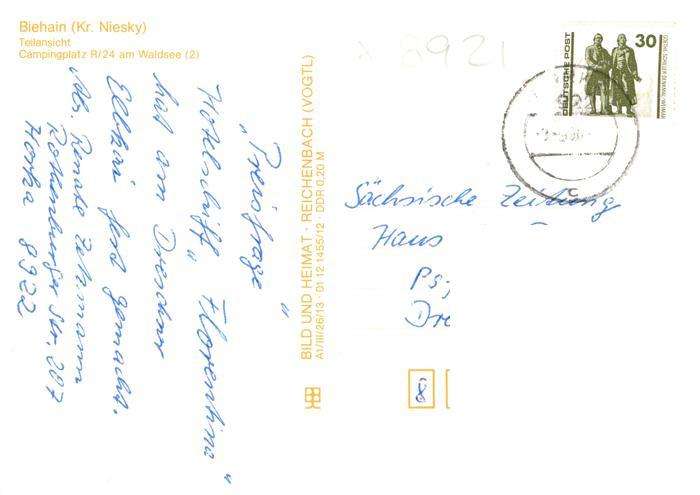 Biehain (Kr. Niesky)
Teilansicht
Campingplatz R/24 am Waldsee (2)
"Preisfrage"
Hotelschiff "Florentina"
hat am Dresdner
Elbkai fest gemacht.
Abs. Renate Zehmann
Rothenburger Str. 207
Horka 8922
BILD UND HEIMAT · REICHENBACH (VOGTL)
A1/III/26/13 · 01 12 1455/12 · DDR 0,20 M
8921
DEUTSCHE POST
30
GOETHE-SCHILLER-DENKMAL WEIMAR
C
Sächsische Zeitung
Haus
Ps
Dre
8